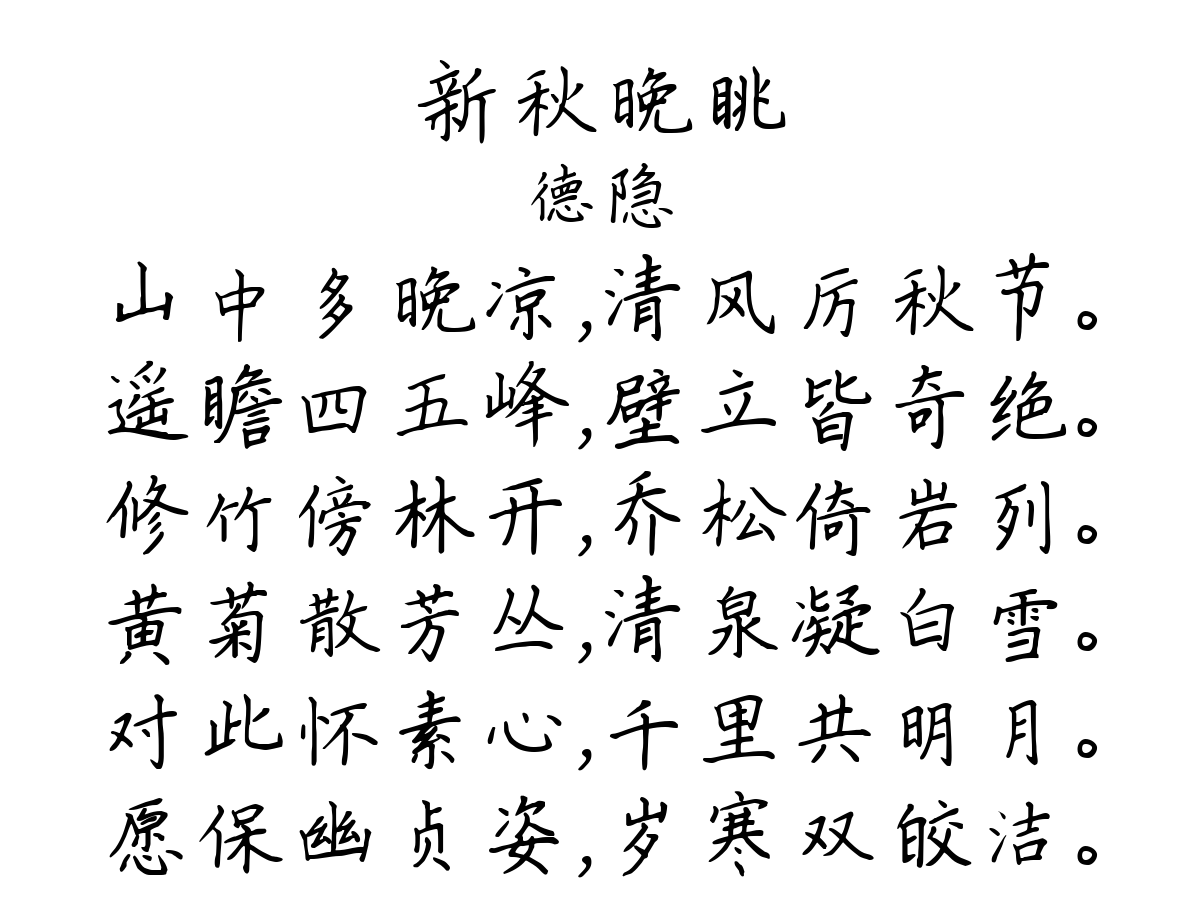 新秋晚眺
德隐
山中多晚凉,清风厉秋节。
遥瞻四五峰,壁立皆奇绝。
修竹傍林开,乔松倚岩列。
黄菊散芳丛,清泉凝白雪。
对此怀素心,千里共明月。
愿保幽贞姿,岁寒双皎洁。